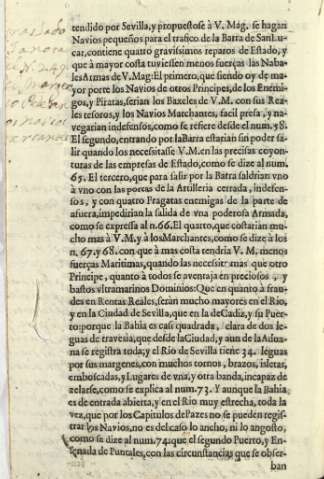 tendido por Sevilla, y propuestose à V. Mag. se hagan
Navios pequeños para el trafico de la Barra de SanLu-
car, contiene quatro gravissimos reparos de Estado, y
que à mayor costa tuviessen menos fuerças las Naba-
les Armas de V. Mag: El primero, que siendo oy de ma-
yor porte los Navios de otros Principe, de los Enemi-
gos, y Piratas, serian los Baxeles de V. M. con sus Rea-
les tesoros, y los Navios Marchantes, facil presa, y na-
vegarian indefensos, como se refiere desde el num. 58.
El segundo, entrando por la Barra estarian sin poder sa-
lir quando los necesitasse V. M. en las precisas coyon-
turas de las empresas de Estado, como se dize al num.
65. El tercero, que para salir por la Barra saldrian vno
à vno con las portas de la Artilleria cerrada, indefen-
sos, y con quatro Fragatas enemigas de la parte de
afuera, impedirian la salida de vna poderosa Armada,
como se expressa al n. 66. El quarto, que costarian mu-
cho mas à V. M. y à los Marchantes, como se dize à los
n. 67. y 68. con que à mas costa tendria V. M. menos
fuerças Maritimas, quando las necessita mas que otro
Principe, quanto à todos se aventaja en preciosos, y
bastos vltramarinos Dominios: Que en quanto à frau-
des en Rentas Reales, seràn mucho mayores en el Rio,
y en la Ciudad de Sevilla, que en la de Cadiz, y su Puer-
to: porque la Bahia es casi quadrada, clara de dos le-
guas de travesia, que desde la Ciudad, y aun de la Adua-
na se registra toda; y el Rio de Sevilla tiene 34. leguas
por sus margenes, con muchos tornos, brazos, isletas,
emboscadas, y Lugares de vna, y otra banda, incapaz de
zelarse, como se explica al num. 73. Y aunque la Bahia
es de entrada abierta, y en el Rio muy estrecha, toda la
vez, que por los Capitulos de Pazes no se pueden regis-
trar los Navios, no es del caso lo ancho, ni lo angosto,
como se dize al num. 74: que el segundo Puerto, y En-
senada de Puntales, con las circunstancias que se obser-
ban